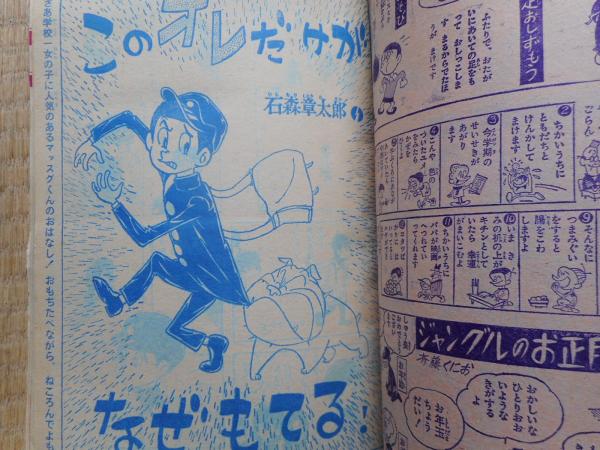 このオレだけが
石森章太郎
なぜもてる!
女の子に人気のあるマッスグくんのおはなし!
おもちたべながら、ねころんでよも
足おしずもう
ふたりで、おたが
いにあいての足をも
って おしっこしま
す まるからでたほ
うが まけです
ごらん
②
ちかいうちに
ともだちと
けんかして
まけます
③
今学期の
せいせきが
あがり
ます
④
こんや 色の
ついたユメ
をみたら
かぜを
ひくよ
⑨
そんなに
つまみぐい
をすると
腸をこわ
しますよ
⑩
いま き
みの机の上が
キチンとして
いたら 幸運
がまいこむよ
⑪
ちかいうちに
パパが映画
へつれてい
ってくれます
⑫
ジャングルのお正月
斉藤くにお
おかしいな
ひとりおお
いような
きがする
お年玉
ちょう
だい!